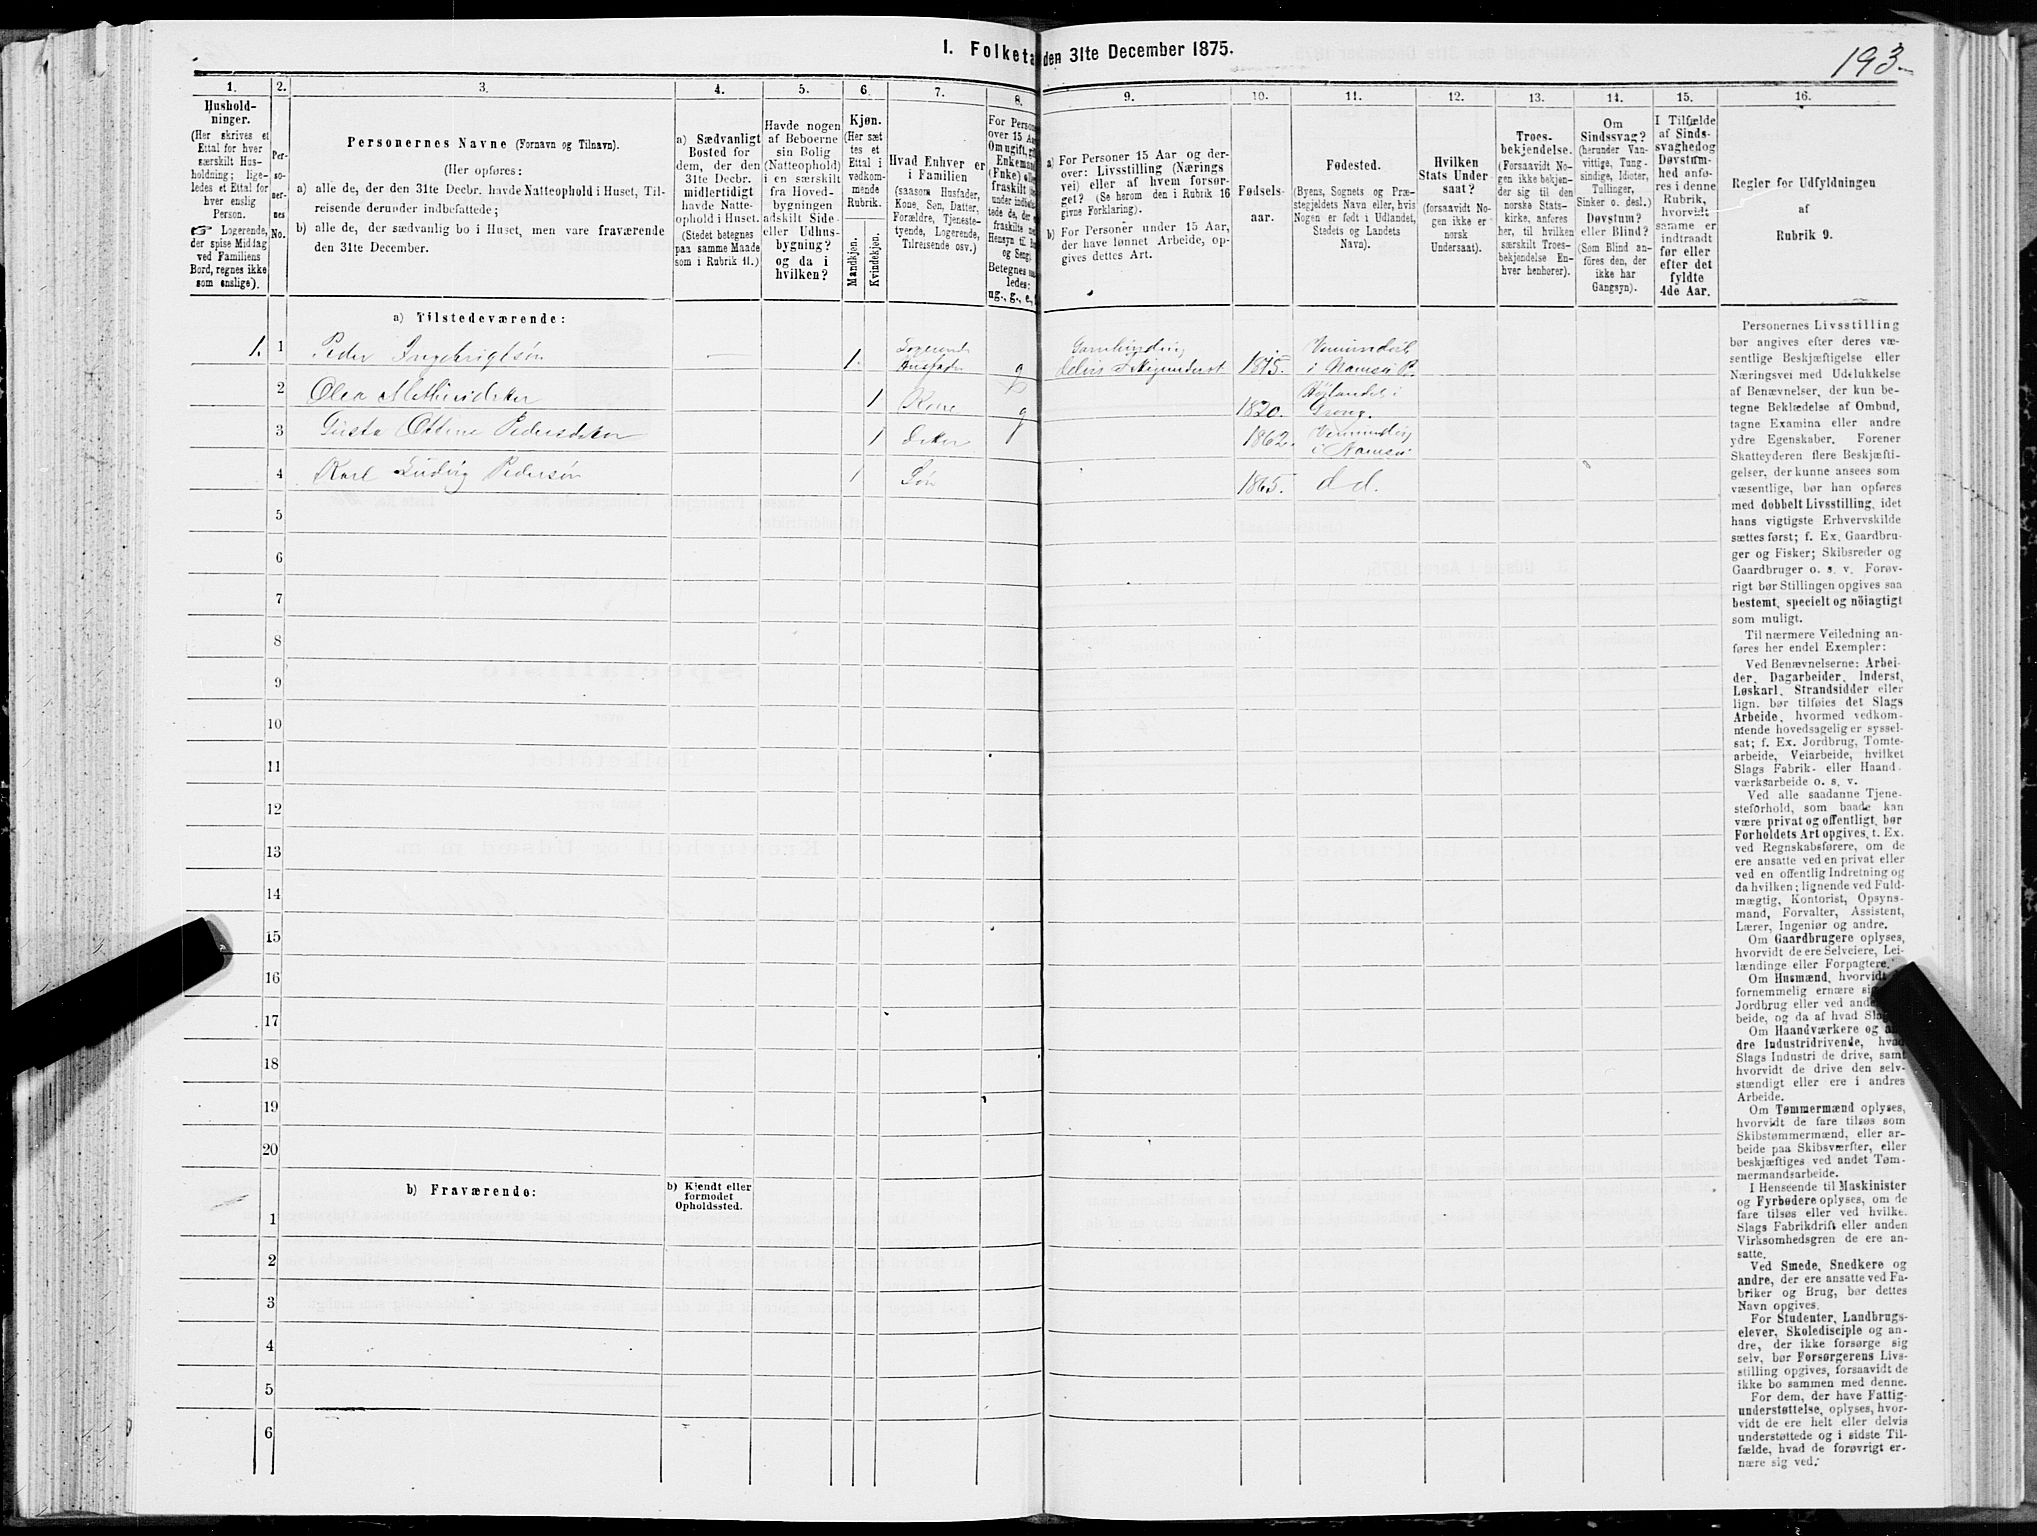 193.
I. Folketa
den 31te December 1875.
1.
2.
3.
4.
5.
6.
7.
8.
9.
10.
11.
12.
13.
14.
15.
16.
Hushold-
ninger.
(Her skrives et
Ettal for hver
særskilt Hus-
holdning; lige-
ledes et Ettal for
hver enslig
Person.
☞ Logerende,
der spise Middag
ved Familiens
Bord, regnes ikke
som enslige).
Per-
so-
ner-
nes
No.
Personernes Navne (Fornavn og Tilnavn).
(Her opføres:
a) alle de, der den 31te Decbr. havde Natteophold i Huset, Til-
reisende derunder indbefattede;
b) alle de, der sædvanlig bo i Huset, men vare fraværende
den 31te December.
a) Sædvanligt
Bosted for
dem, der den
31te Decbr.
midlertidigt
havde Natte-
ophold i Huset.
(Stedet betegnes
paa samme Maade
som i Rubrik 11.)
Havde nogen
af Beboerne
sin Bolig
(Natteophold)
i en særskilt
fra Hoved-
bygningen
adskilt Side-
eller Udhus-
bygning?
og da i
hvilken?
Kjøn.
(Her sæt
tes et
Ettal i
vedkom-
mende
Rubrik.)
Mandkjøn.
Kvindekjøn.
Hvad Enhver er
i Familien
(saasom Husfader,
Kone, Søn, Datter,
Forældre, Tjeneste-
tyende, Logerende,
Tilreisende osv.)
For Person
over 15 Aa
Om ugift, g
Enkeman
(Fnke) e
fraskilt
under indbe
tede de, der
fraskilte
Hensyn til
og Seng.
Betegnes
ledes:
ug., g., e.,
a) For Personer 15 Aar og der-
over: Livsstilling (Nærings
vei) eller af hvem forsør-
get? (Se herom den i Rubrik 16
givne Forklaring).
b) For Personer under 15 Aar,
der have lønnet Arbeide, op-
gives dettes Art.
Fødsels-
aar.
Fødested.
(Byens, Sognets og Præ-
stegjeldets Navn eller, hvis
Nogen er født i Udlandet,
Stedets og Landets
Navn).
Hvilken
Stats Under-
saat?
(forsaavidt No-
gen ikke er
norsk
Undersaat).
Troes-
bekjendelse.
(Forsaavidt No-
gen ikke bekjen-
der sig til den
norske Stats-
kirke, anføres
her, til hvilken
særskilt Troes-
bekjendelse En-
hver henhører).
Om
Sindssvag?
(herunder Van-
vittige, Tung-
sindige, Idioter,
Tullinger,
Sinker o. desl.)
Døvstum?
eller Blind?
(Som Blind an-
føres den, der
ikke har
Gangsyn).
I Tilfælde
af Sinds-
svaghed og
Døvstum-
hed anfø-
res i denne
Rubrik,
hvorvidt
samme er
indtraadt
før eller
efter det
fyldte
4de Aar.
Regler for Udfyldningen
af
Rubrik 9.
a) Tilstedeværende:
1. 1 Peder Ingebrigtsøn 1. Logerende Husfader g 1815. i Namsos P.
2 Olea 1 Kone g 1820. Høilandet i Grong.
3 Gusta Ottine Pedersdatter 1 1862.
4 Karl Ludvig Pedersøn 1 Søn 1865. d d.
5
6
7
8
9
10
11
12
13
14
15
16
17
18
19
20
b) Fraværende:
b) Kjendt eller
formodet
Opholdssted.
1
2
3
4
5
6
Personernes Livsstilling
bør angives efter deres væ-
sentlige Beskjæftigelse eller
Næringsvei med Udelukkelse
af Benævnelser, der kun be-
tegne Beklædelse af Ombud,
tagne Examina eller andre
ydre Egenskaber. Forener
Skatteyderen flere Beskjæfti-
gelser, der kunne ansees som
væsentlige, bør han opføres
med dobbelt Livsstilling, idet
hans vigtigste Erhvervskilde
sættes først; f. Ex. Gaardbru-
ger og Fisker; Skibsreder og
Gaardbruger o. s. v. Forøv-
rigt bør Stillingen opgives saa
bestemt, specielt og nöiagtigt
som muligt.
Til nærmere Veiledning an-
føres her endel Exempler:
Ved Benævnelserne: Arbei-
der, Dagarbeider, Inderst,
Løskarl, Strandsidder eller
lign. bør tilføies det Slags
Arbeide, hvormed vedkom-
mende hovedsagelig er syssel-
sat; f. Ex. Jordbrug, Tomte-
arbeide, Veiarbeide, hvilket
Slags Fabrik- eller Haand-
værksarbeide o. s. v.
Ved alle saadanne Tjene-
steforhold, som baade kan
være privat og offentligt, bør
Forholdets Art opgives, t. Ex.
ved Regnskabsførere, om de
ere ansatte ved en privat eller
ved en offentlig Indretning og
da hvilken; lignende ved Fuld-
mægtig, Kontorist, Opsyns-
mand, Forvalter, Assistent,
Lærer, Ingeniør og andre.
Om Gaardbrugere oplyses,
hvorvidt de ere Selveiere, Lei-
lændinge eller Forpagtere.
Om Husmænd, hvorvidt
fornemmelig ernære si
Jordbrug eller ved and
beide, og da af hvad Slag
Om Haandværkere og
dre Industridrivende, hvad
Slags Industri de drive, samt
hvorvidt de drive den selv-
stændigt eller ere i andres
Arbeide.
Om Tømmermænd oplyses,
hvorvidt de fare tilsøs som
Skibstømmermænd, eller ar-
beide paa Skibsværfter, eller
beskjæftiges ved andet Tøm-
mermandsarbeide.
I Henseende til Maskinister
og Fyrbødere oplyses, om de
fare tilsøs eller ved hvilke.
Slags Fabrikdrift eller anden
Virksomhedsgren de ere an-
satte.
Ved Smede, Snedkere og
andre, der ere ansatte ved Fa-
briker og Brug, bør dettes
Navn opgives.
For Studenter, Landbrugs-
elever, Skoledisciple og an-
dre, der ikke forsørge sig
selv, bør Forsørgerens Livs-
stilling opgives, forsaavidt de
ikke bo sammen med denne.
For dem, der have Fattig-
understøttelse, oplyses, hvor-
vidt de ere helt eller delvis
understøttede og i sidste Til-
fælde, hvad de forøvrigt er-
nære sig ved.